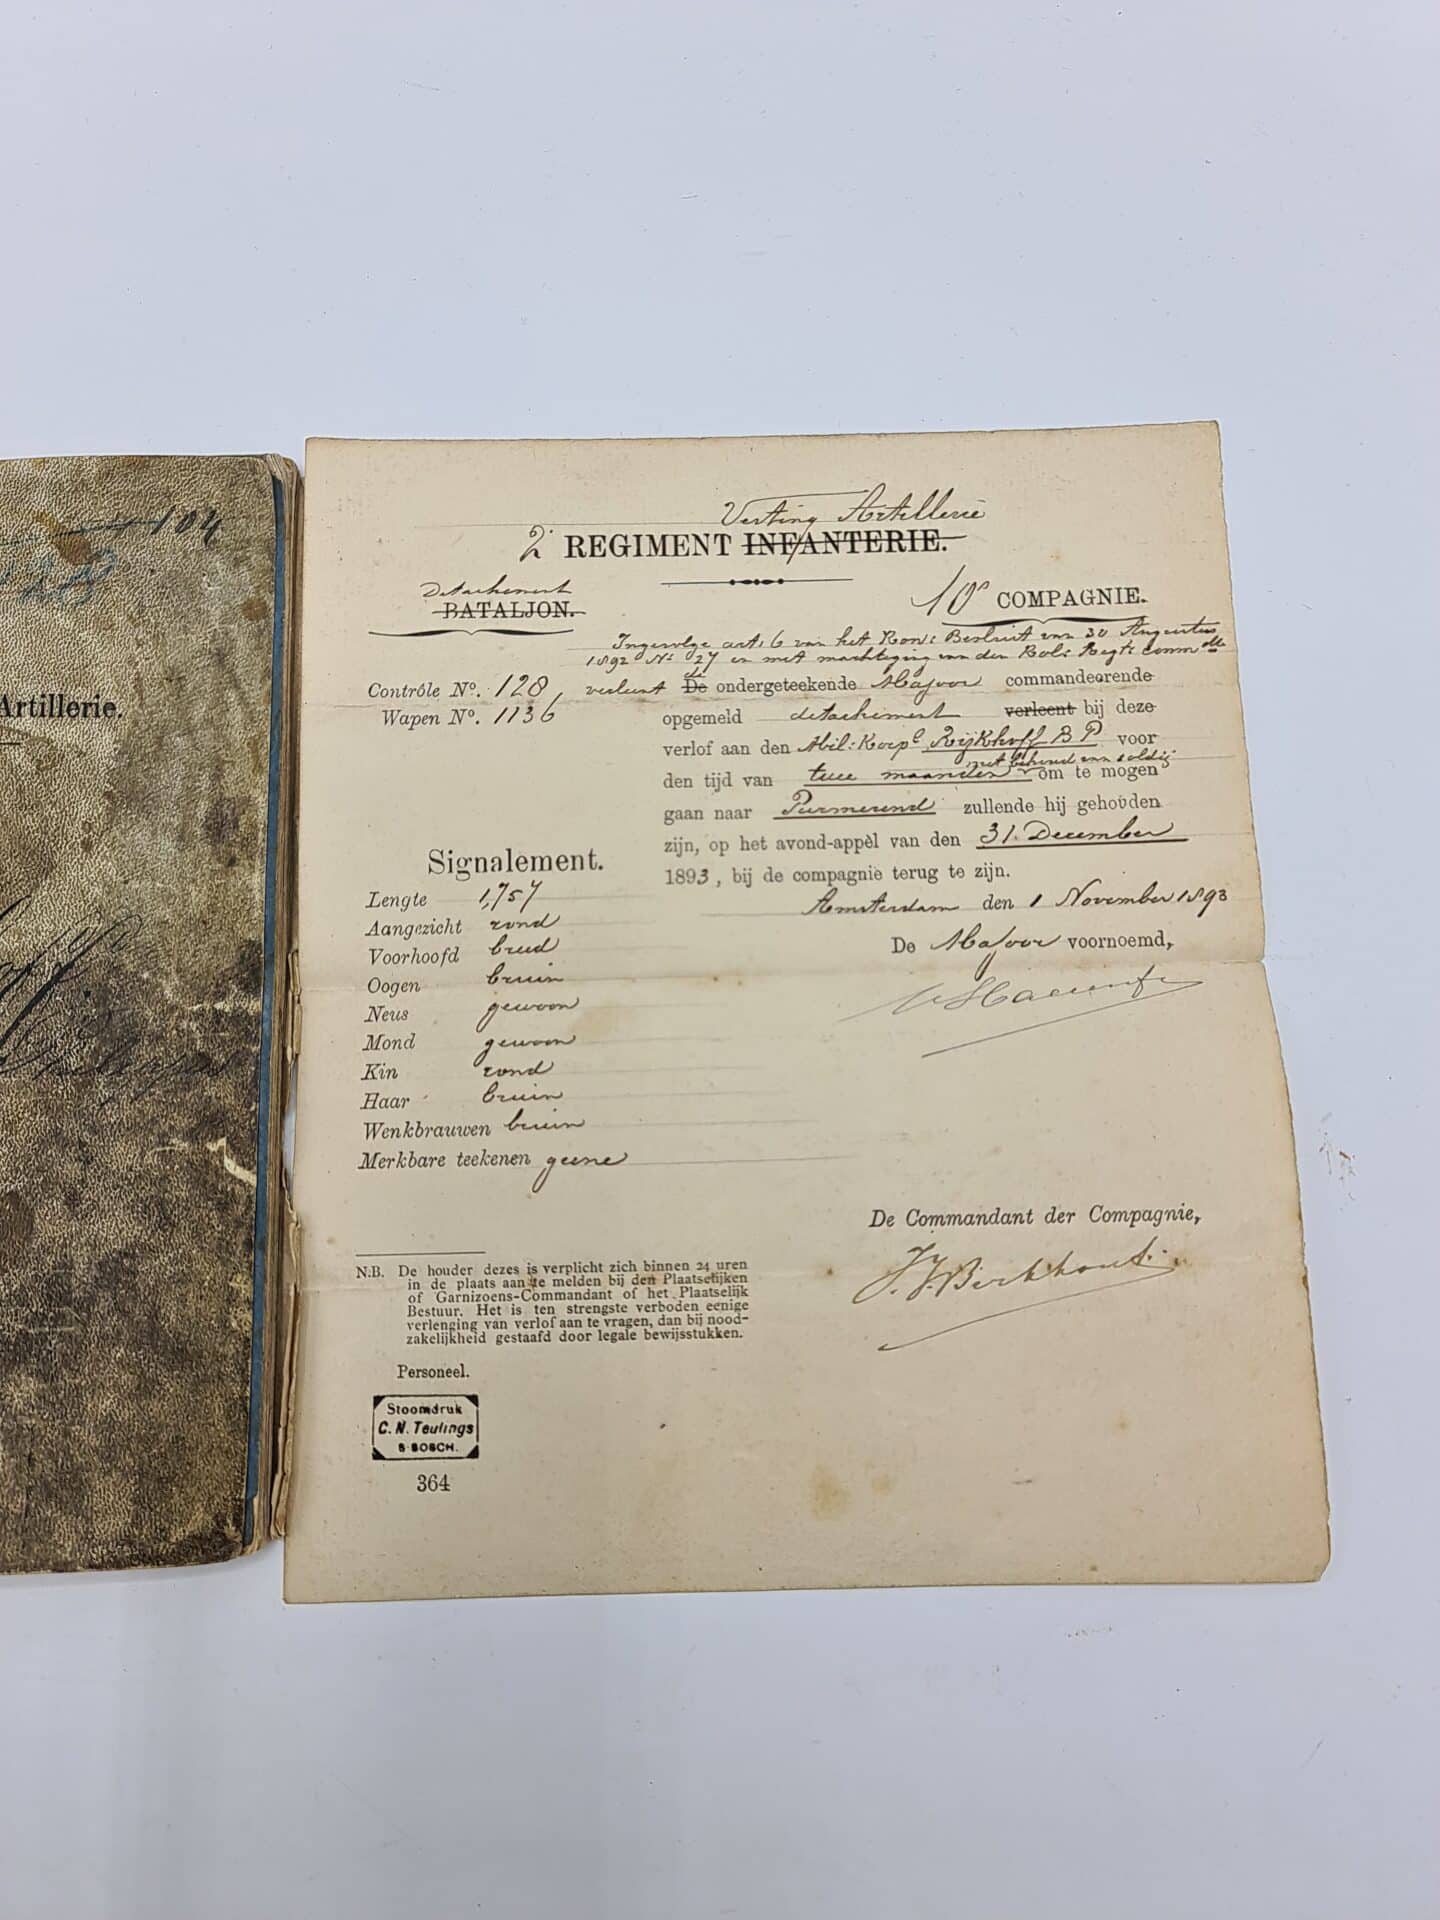 104
Artillerie.
Vesting Artillerie
2e REGIMENT INFANTERIE.
Detachement
BATALJON.
10e COMPAGNIE.
Ingevolge art: 6 van het Kon: Besluit van 30 Augustus
1892 No 27 en met machtiging van den Kol: Regts comm
Contrôle No. 128, verleent De de ondergeteekende Majoor commandeerende
Wapen No. 1136
opgemeld detachement verleent bij deze
verlof aan den Mil: Korpl Rijkhoff B P voor
met behoud van soldij
den tijd van twee maanden om te mogen
gaan naar Purmerend zullende hij gehouden
zijn, op het avond-appèl van den 31. December
1893, bij de compagnie terug te zijn.
Amsterdam den 1 November 1893
De Majoor voornoemd,
Signalement.
Lengte 1,757
Aangezicht rond
Voorhoofd breed
Oogen bruin
Neus gewoon
Mond gewoon
Kin rond
Haar bruin
Wenkbrauwen bruin
Merkbare teekenen geene
De Commandant der Compagnie,
J. J. Berkhout.
N.B. De houder dezes is verplicht zich binnen 24 uren
in de plaats aan te melden bij den Plaatselijken
of Garnizoens-Commandant of het Plaatselijk
Bestuur. Het is ten strengste verboden eenige
verlenging van verlof aan te vragen, dan bij nood-
zakelijkheid gestaafd door legale bewijsstukken.
Personeel.
Stoomdruk
C. N. Teulings
S BOSCH.
364